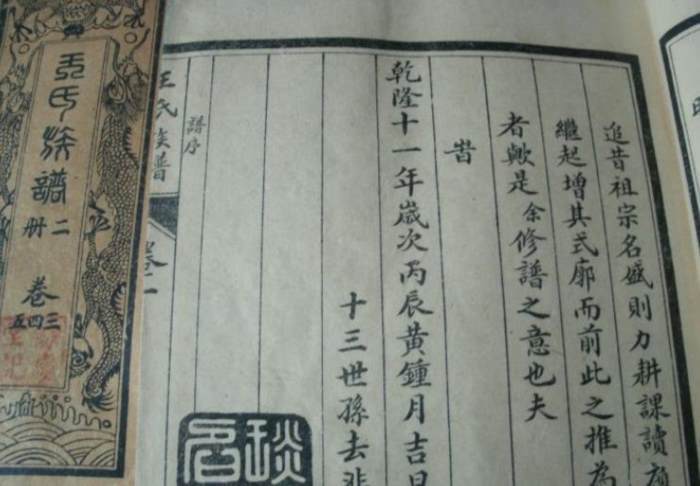 追昔祖宗名盛則力耕課讀
繼起增其式廓而前此之推為
者歟是余修譜之意也夫
旹
乾隆十一年歲次丙辰黃鍾月吉日
十三世孫去非
譜序
王氏族譜
卷一
王氏族譜
二册
卷三四五